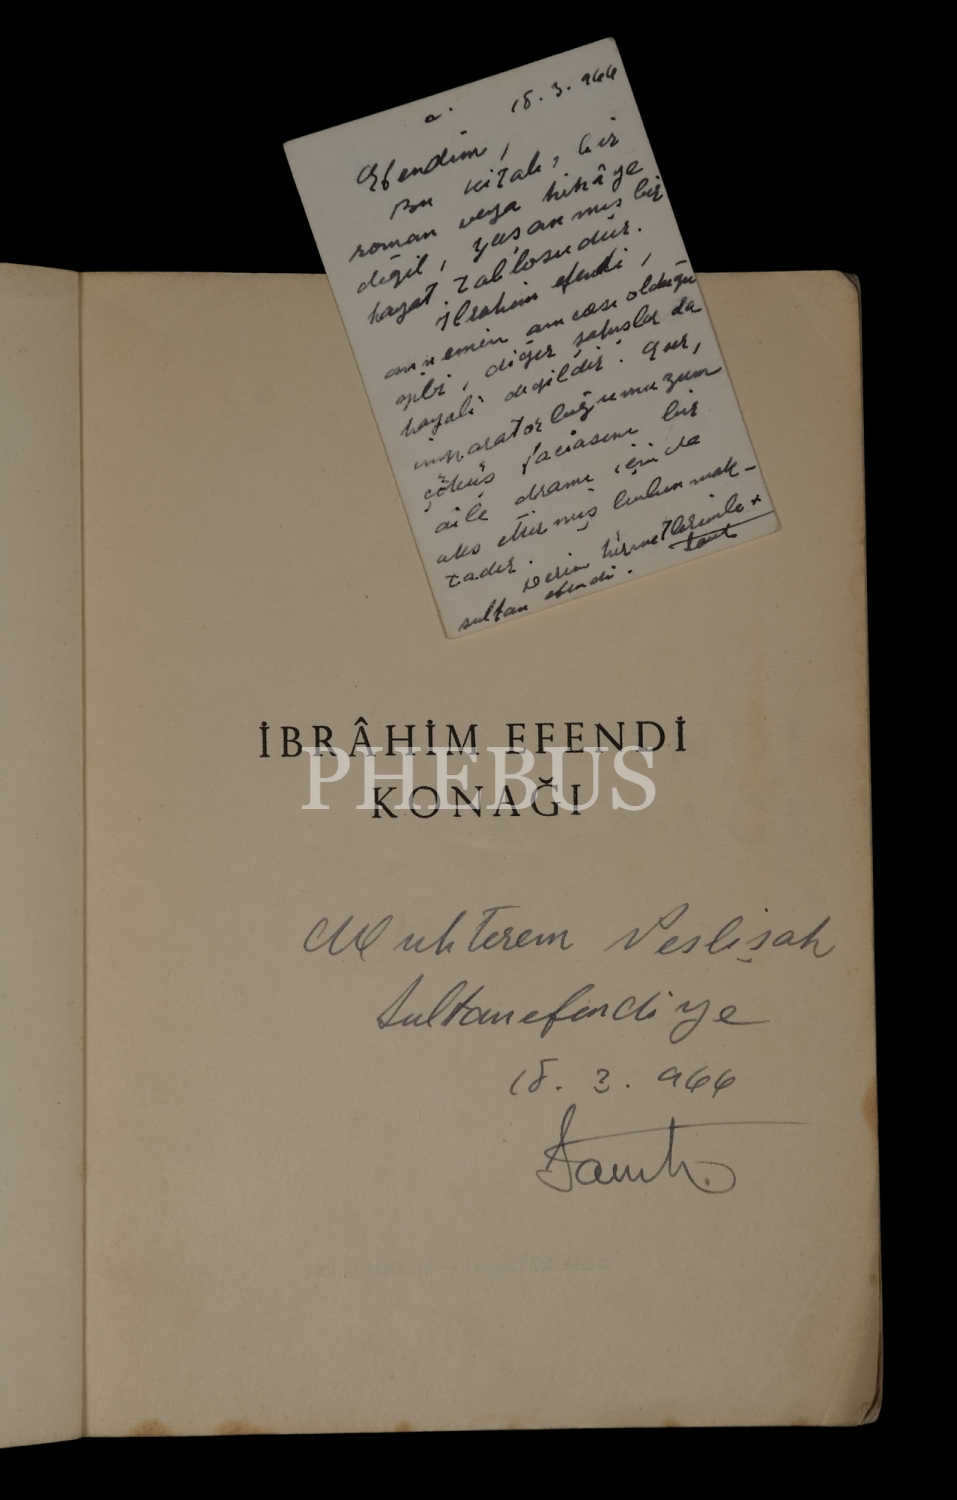 18.3.966
Efendim,
Bu kitab, bir
roman veya hikâye
değil, yaşanmış bir
hayat tablosudur.
İbrahim efendi,
annemin amcası olduğu
gibi, diğer şahıslar da
hayalî değildir. Eser,
imparatorluğumuzun
çöküş faciasını bir
âile dramı içinde
aks ettirmiş bulunmak-
tadır.
Derin hürmetlerimle
sultan efendi.
Samih
İBRÂHİM EFENDİ
KONAĞI
PHEBUS
Muhterem Neslişah
Sultanefendiye
18.3.966
Samiha